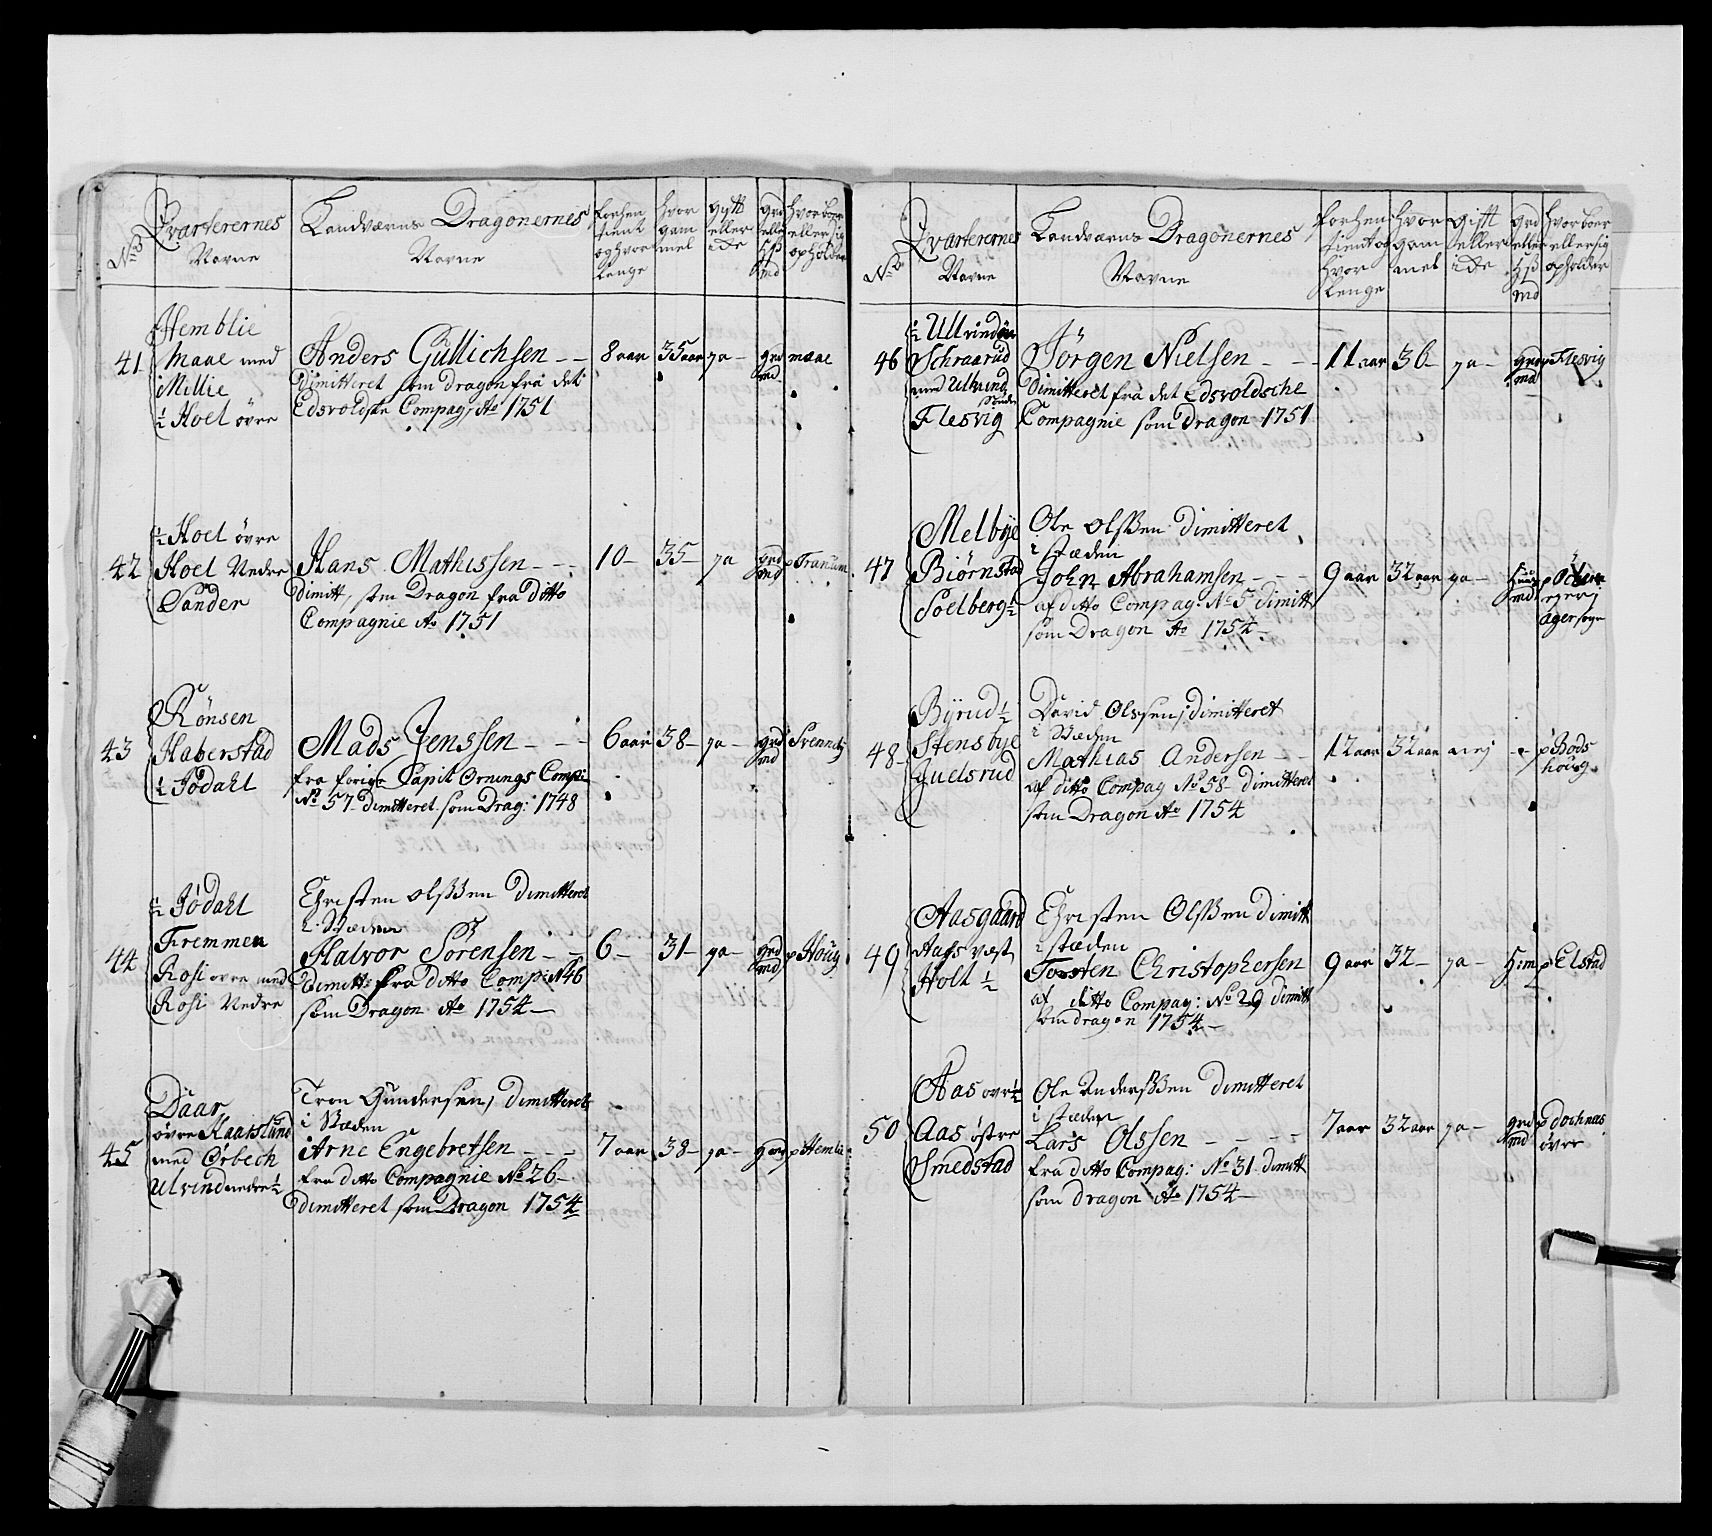 Qvarterernes
Navne
Landværns Dragonernes
Navne
forhen
tient
og hvor
lenge
hvor
gam
mel
gift
eller
ide
grd
eller
hß
md
hvor boer
eller sig
opholder
41
Hemblie
Maae med
Millie
½ Hoel övre
Anders Gullichsen
dimitteret som Dragon fra det
Edsvoldske Compag, Ao 1751
8 aar
35 aar
ja
grd
md
maae
42
½ Hoel övre
Hoel Nedre
Sander
Hans Mathissen
Dimitt, som Dragon fra ditto
Compagnie Ao 1751
10
35
ja
grd
md
p Tranum
43
Rönsen
Haberstad
½ Jödahl
Mads Jenssen
fra forige Capit Ornings Comp:
No 57 dimitteret som Drag: 1748
6 aar
38
ja
grd
md
44
½ Jödahl
Fremmen
Rosi ovre med
Rosi Nedre
Christen olsßen Dimitteret
i Stæden
Halvor Sörensen
Dimitt: fra ditto Comp: N 46
som Dragon Ao 1754
6
31
ja
grd
md
p Houg
45
Daar
övre Kaatslund
med Örbech
Ulvind nedre ½
Tron Gundersen, Dimitteret
i Stæden
Arne Engebretsen
fra ditto Compagnie No 26
Dimitteret som Dragon 1754
7 aar
38
ja
p Hemlie
No
Qvarterernes
Navne
Landværns Dragonernes
Navne
forhen
tient og
hvor
lenge
hvor
gam
mel
gift
eller
ide
grd
eller
hß
md
hvor boer
eller sig
opholder
46
½ Ullvind
Schraarud
med Ulvind
Sönder
Flesvig
Jörgen Nielsen
Dimitteret fra det Edsvoldsche
Compagnie som Dragon 1751
11 aar
36
ja
md
Flesvig
47
Melbye
Biörnstad
Soelberg ½
Ole olsßen Dimitteret
i stæden
John Abrahamsen
af ditto Compag: No 5 dimitt
som Dragon Ao 1754
9 aar
32 aar
ja
md
ager sogn
48
Byrud ½
Stensbye
Juelsrud
David Olssen, dimitteret
i Stæden
Mathias Andersen
af ditto Compag No 58 dimitteret
som Dragon Ao 1754
12 aar
32 aar
nej
p Bods
houg
49
Aasgaard
Aass væst
Holt ½
Christen Olsßen dimitt
i stæden
Torsten Christophersen
af ditto Compag: No 29 dimitt
som dragon 1754
9 aar
32
ja
Hsm
p Elstad
50
Aas ovr ½
Aas östre
Smedstad
Ole Andersßen dimitteret
i stæden
Lars Olssen
fra ditto Compag: No 31 dimitt
som dragon Ao 1754
7 aar
32 aar
ja
grd
md
p Dochnas
övre